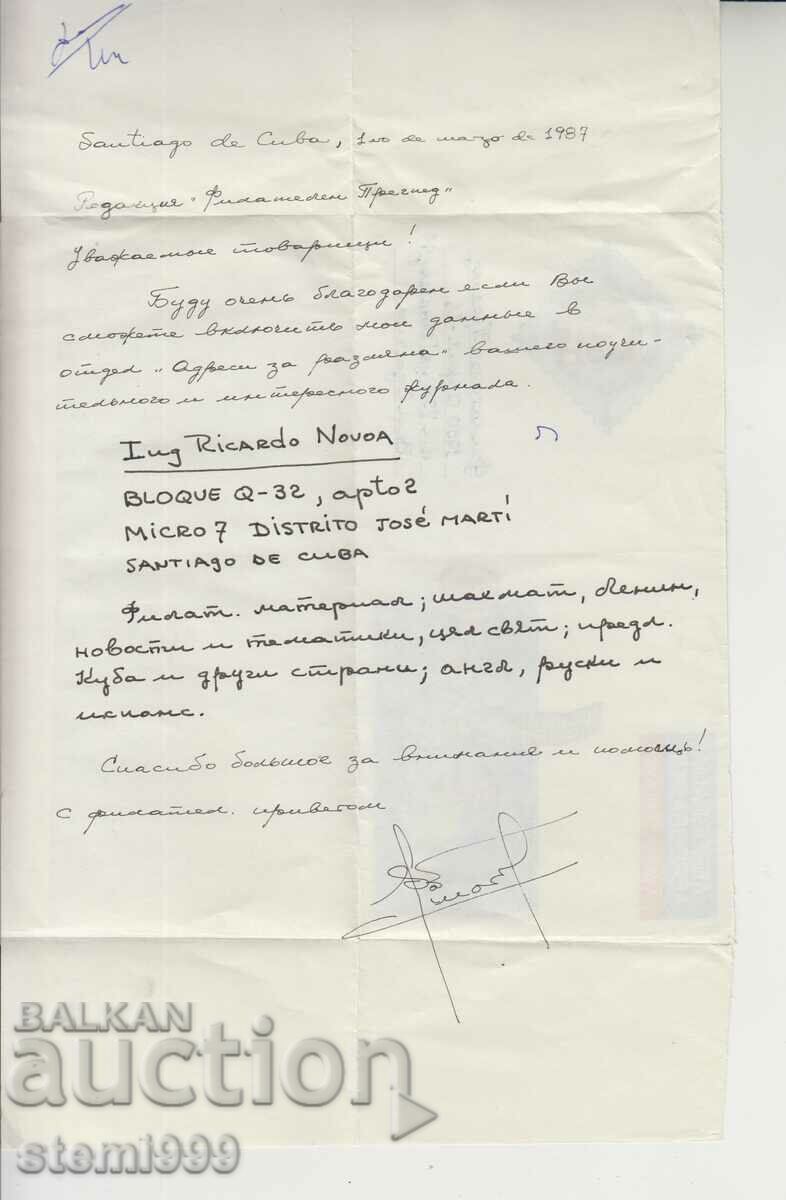 Santiago de Cuba, 1ro de marzo de 1987
Редакция "Филателен Преглед"
Уважаемые товарищи!
Буду очень благодарен если Вы
сможете включить мои данные в
отдел "Адреси за размяна" вашего поучи-
тельного и интересного журнала.
Ing RICARDO NOVOA
BLOQUE Q-32, apto 2
MICRO 7 DISTRITO JOSÉ MARTÍ
SANTIAGO DE CUBA
Филат. материал; шахмат, Ленин,
новости и тематики, цял свят; предл.
Куба и други страни; англ, руски и
испанс.
Спасибо большое за внимание и помощь!
С филател. приветом
BALKAN
auction
stemi999